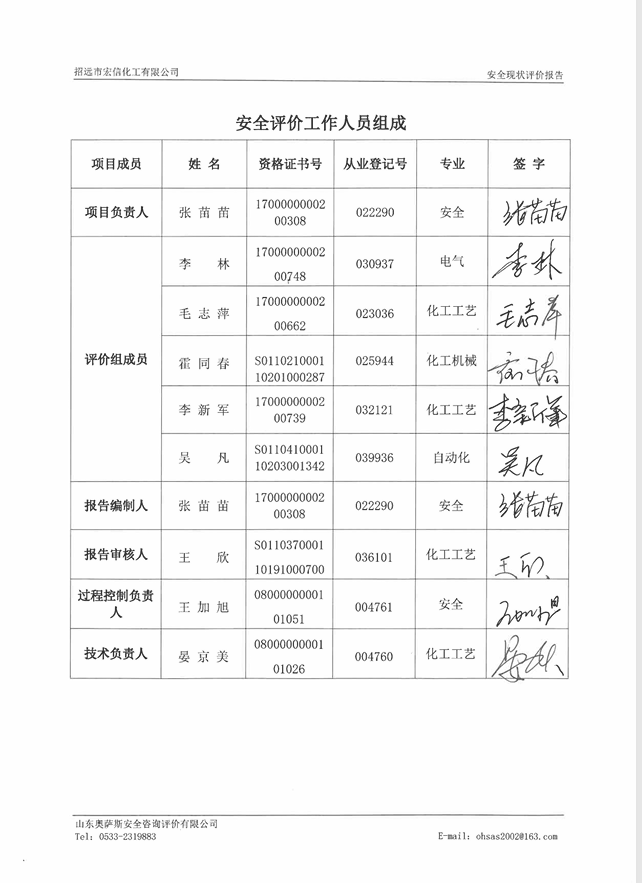 招远市宏信化工有限公司 安全现状评价报告
安全评价工作人员组成
项目成员 姓 名 资格证书号 从业登记号 专业 签 字
项目负责人 张 苗 苗 17000000002 00308 022290 安全 张苗苗
评价组成员 李 林 17000000002 00748 030937 电气 李林
毛 志 萍 17000000002 00662 023036 化工工艺 毛志萍
霍 同 春 S0110210001 10201000287 025944 化工机械
李 新 军 17000000002 00739 032121 化工工艺 李新军
吴 凡 S0110410001 10203001342 039936 自动化 吴凡
报告编制人 张 苗 苗 17000000002 00308 022290 安全 张苗苗
报告审核人 王 欣 S0110370001 10191000700 036101 化工工艺 王欣
过程控制负责人 王 加 旭 08000000001 01051 004761 安全
技术负责人 晏 京 美 08000000001 01026 004760 化工工艺
山东奥萨斯安全咨询评价有限公司
Tel: 0533-2319883 E-mail: ohsas2002@163.com